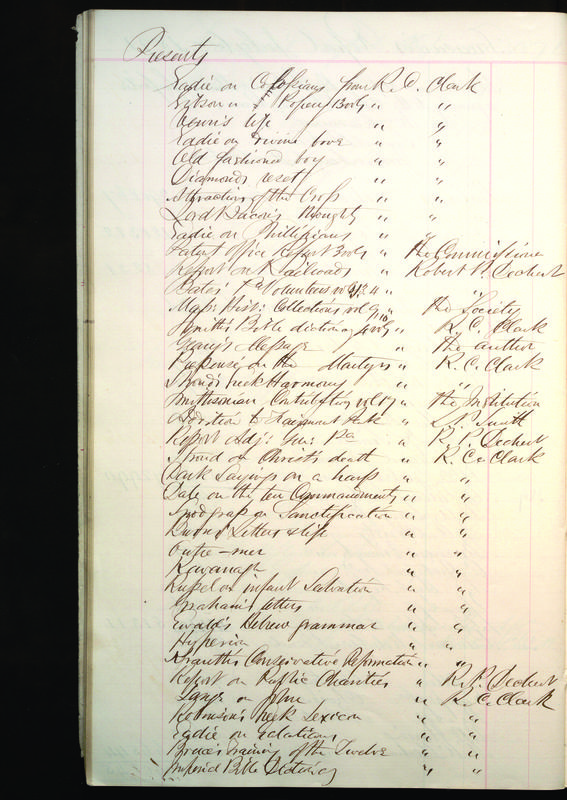 Presents
Eadie on Colossians from R. C. Clark
Gibson's Popery Body " "
Venn's life " "
Eadie on Divine love " "
Old fashioned boy " "
Diamonds reset " "
Attraction of the Cross " "
Lord Bacon's thoughts " "
Eadie on Phillipians " "
Patent Office Report Books " the Commissioner
Report on Railroads " Robert P. Dechert
Bates' Pa Volunteers vol " "
Mass: Hist: Collections vol " the Society
Smith's Bible dictionary " R. C. Clark
Geary's Message " the author
Response on the Martyrs " R. C. Clark
Stroud's Greek Harmony " "
Smithsonian Contribution vol 17 " the Institution
Addition to Fairmount Park " Smith
Report Adj: Gen: Pa " R. P. Dechert
Stroud on Christ's death " R. C. Clark
Dark Sayings on a harp " "
Dale on the ten Commandments " "
Snodgrass on Sanctification " "
Letters & life " "
Outre-mer " "
Kavanagh " "
Russel on infant Salvation " "
Graham's letters " "
Ewald's Hebrew grammar " "
Hyperion " "
Krauth's Conservative Reformation " "
Report on Public Charities " R. P. Dechert
Lange on John " R. C. Clark
Robinson's Greek Lexicon " "
Eadie on Galatians " "
Bruce's training of the Twelve " "
Imperial Bible Dictionary " "